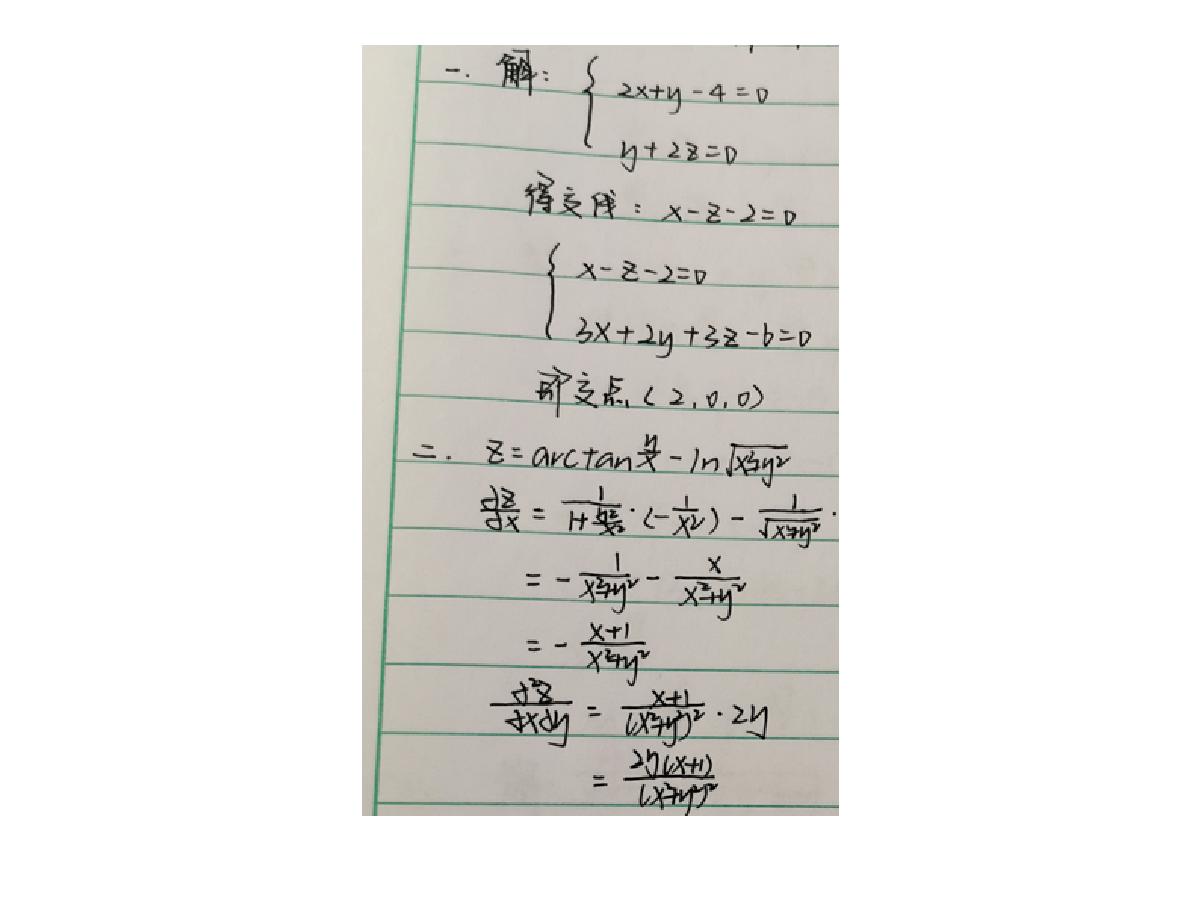 一. 解: { 2x+y-4=0
y+2z=0
得交线: x-z-2=0
{ x-z-2=0
3x+2y+3z-6=0
即交点(2,0,0)
二. z=arctan y/x - ln√(x²+y²)
dz/dx = 1/(1+y²/x²)·(-1/x²) - 1/√(x²+y²)·
= - 1/(x²+y²) - x/(x²+y²)
= - (x+1)/(x²+y²)
d²z/dxdy = (x+1)/(x²+y²)²·2y
= 2y(x+1)/(x²+y²)²